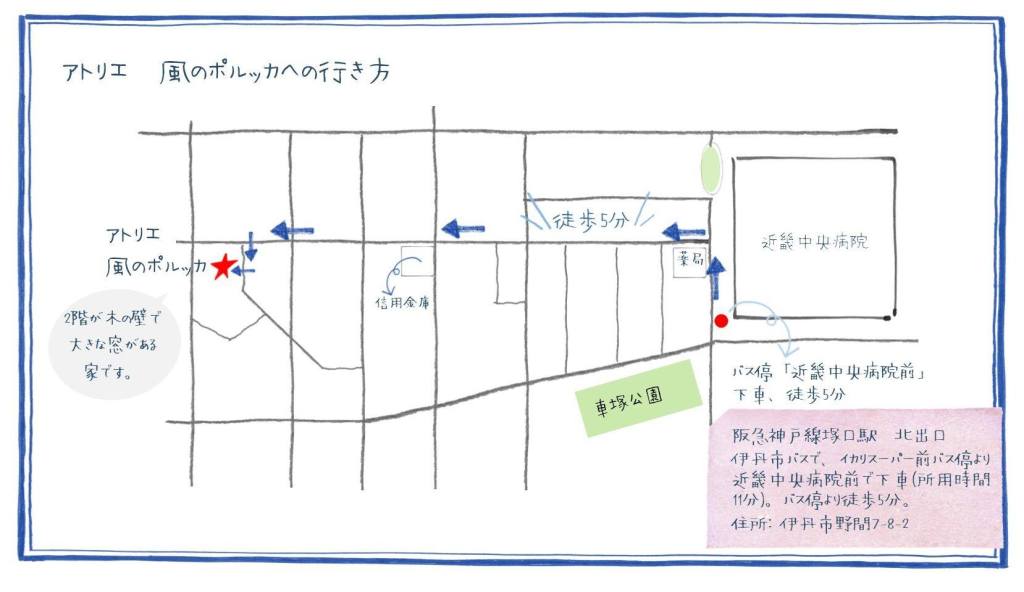 アトリエ 風のポルッカへの行き方
徒歩5分
近畿中央病院
薬局
アトリエ
風のポルッカ
信用金庫
2階が木の壁で
大きな窓がある
家です。
車塚公園
バス停「近畿中央病院前」
下車、徒歩5分
阪急神戸線塚口駅 北出口
伊丹市バスで、イカリスーパー前バス停より
近畿中央病院前で下車(所用時間
11分)。バス停より徒歩5分。
住所: 伊丹市野間7-8-2